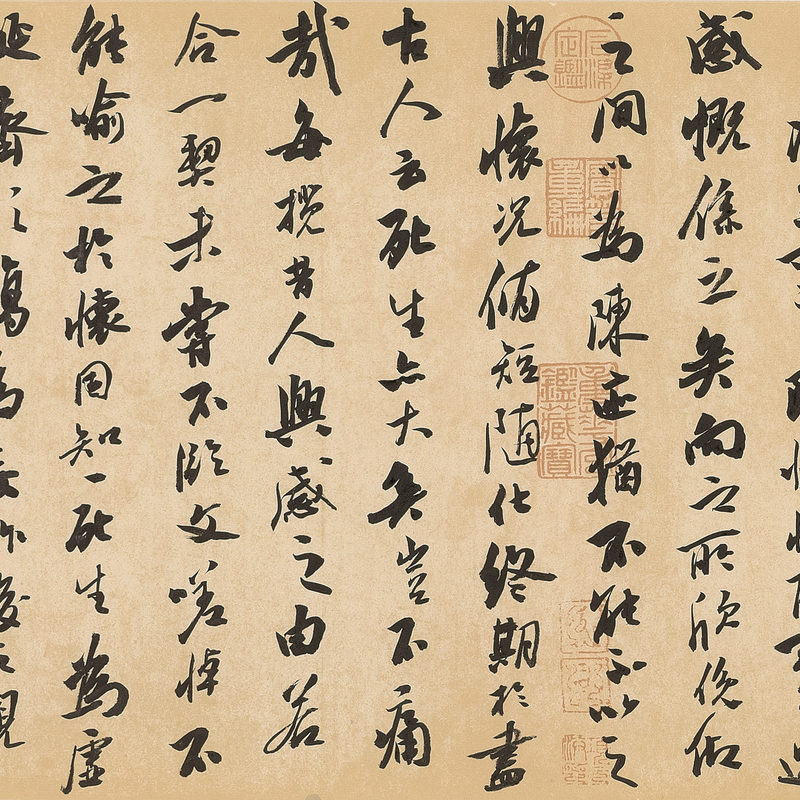 感慨係之矣向之所欣俛仰
之間以為陳迹猶不能不以之
興懷況脩短随化終期於盡
古人云死生亦大矣豈不痛
哉每攬昔人興感之由若
合一契未嘗不臨文嗟悼不
能喻之於懷固知一死生為虛
石渠定鑑
寶笈重編
重華宮鑑藏寶